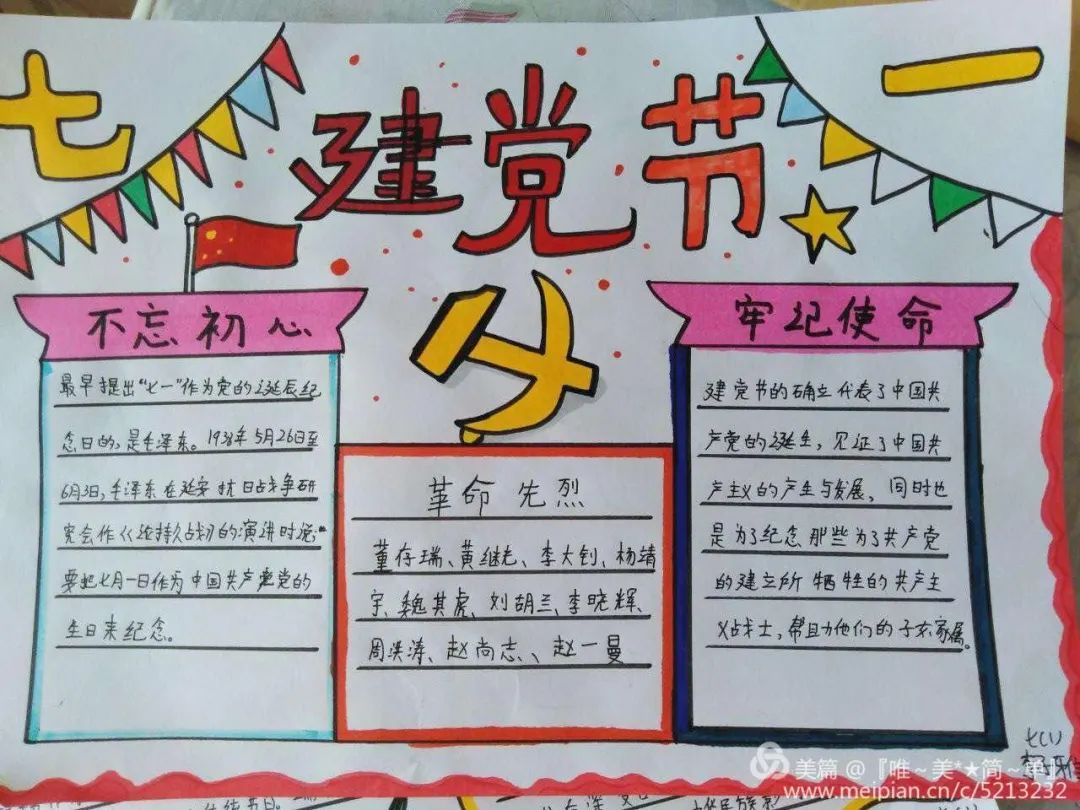 七一
建党节
不忘初心
最早提出“七一”作为党的诞辰纪
念日的,是毛泽东。1938年5月26日至
6月3日,毛泽东在延安抗日战争研
究会作《论持久战》的演讲时说:“
要把七月一日作为中国共产党党的
生日来纪念。
革命先烈
董存瑞、黄继光、李大钊、杨靖
宇、魏其虎、刘胡兰、李晓辉、
周洪涛、赵尚志、、赵一曼
牢记使命
建党节的确立代表了中国共
产党的诞生,见证了中国共
产主义的产生与发展,同时也
是为了纪念那些为了共产党
的建立所牺牲的共产主
义战士,帮助他们的子女家属。
七(1)
美篇 @『唯~美*★简~单』
www.meipian.cn/c/5213232